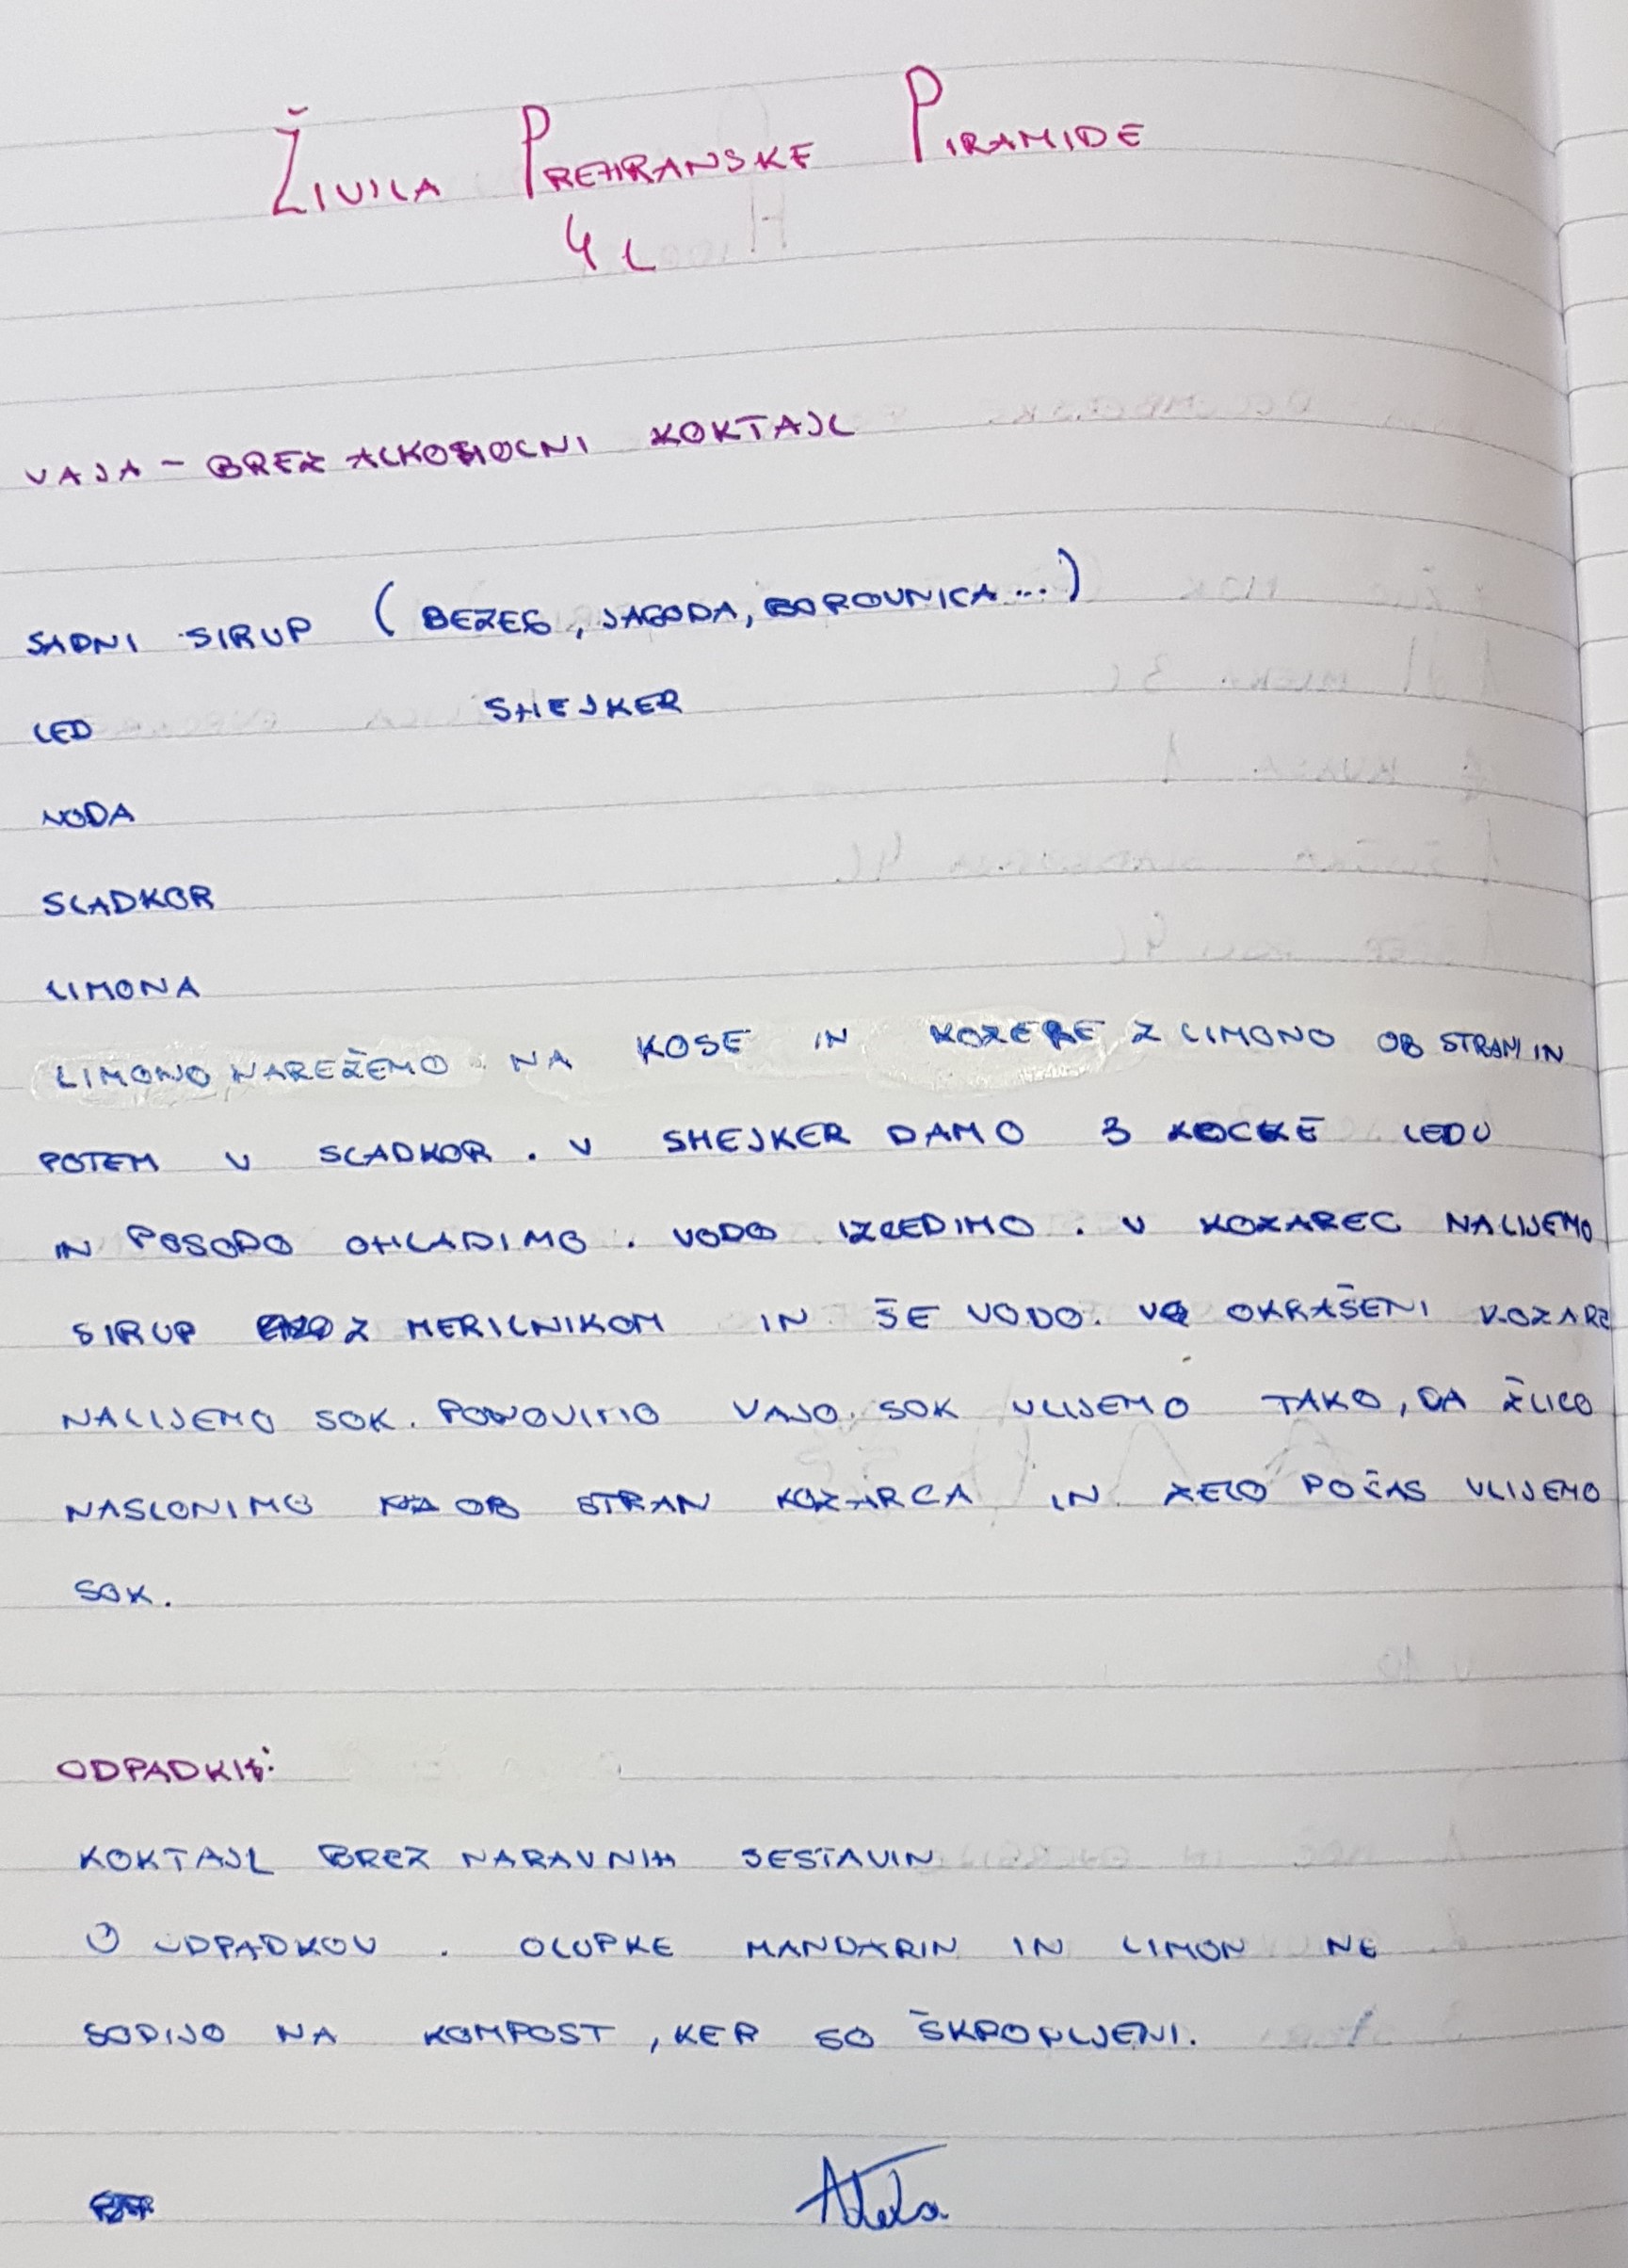 Živila Prehranske Piramide
4 L
VAJA - BREZ ALKOHOLNI KOKTAJL
SADNI SIRUP (BEZEG, JAGODA, BOROVNICA...)
LED SHEJKER
VODA
SLADKOR
LIMONA
LIMONO NAREŽEMO NA KOSE IN Z LIMONO OB STRANI IN
POTEM V SLADKOR. V SHEJKER DAMO 3 KOCKE LEDU
IN POSODO OHLADIMO. VODO IZCEDIMO. V KOZAREC NALIJEMO
SIRUP Z MERILNIKOM IN ŠE VODO. V OKRAŠENI KOZARE
NALIJEMO SOK. PONOVIMO VAJO. SOK VLIJEMO TAKO, DA ŽLICO
NASLONIMO OB STRAN KOZARCA IN ZELO POČAS VLIJEMO
SOK.
ODPADKI:
KOKTAJL BREZ NARAVNIH SESTAVIN
0 ODPADKOV. OLUPKE MANDARIN IN LIMON NE
SODIJO NA KOMPOST, KER SO ŠKROPLJENI.